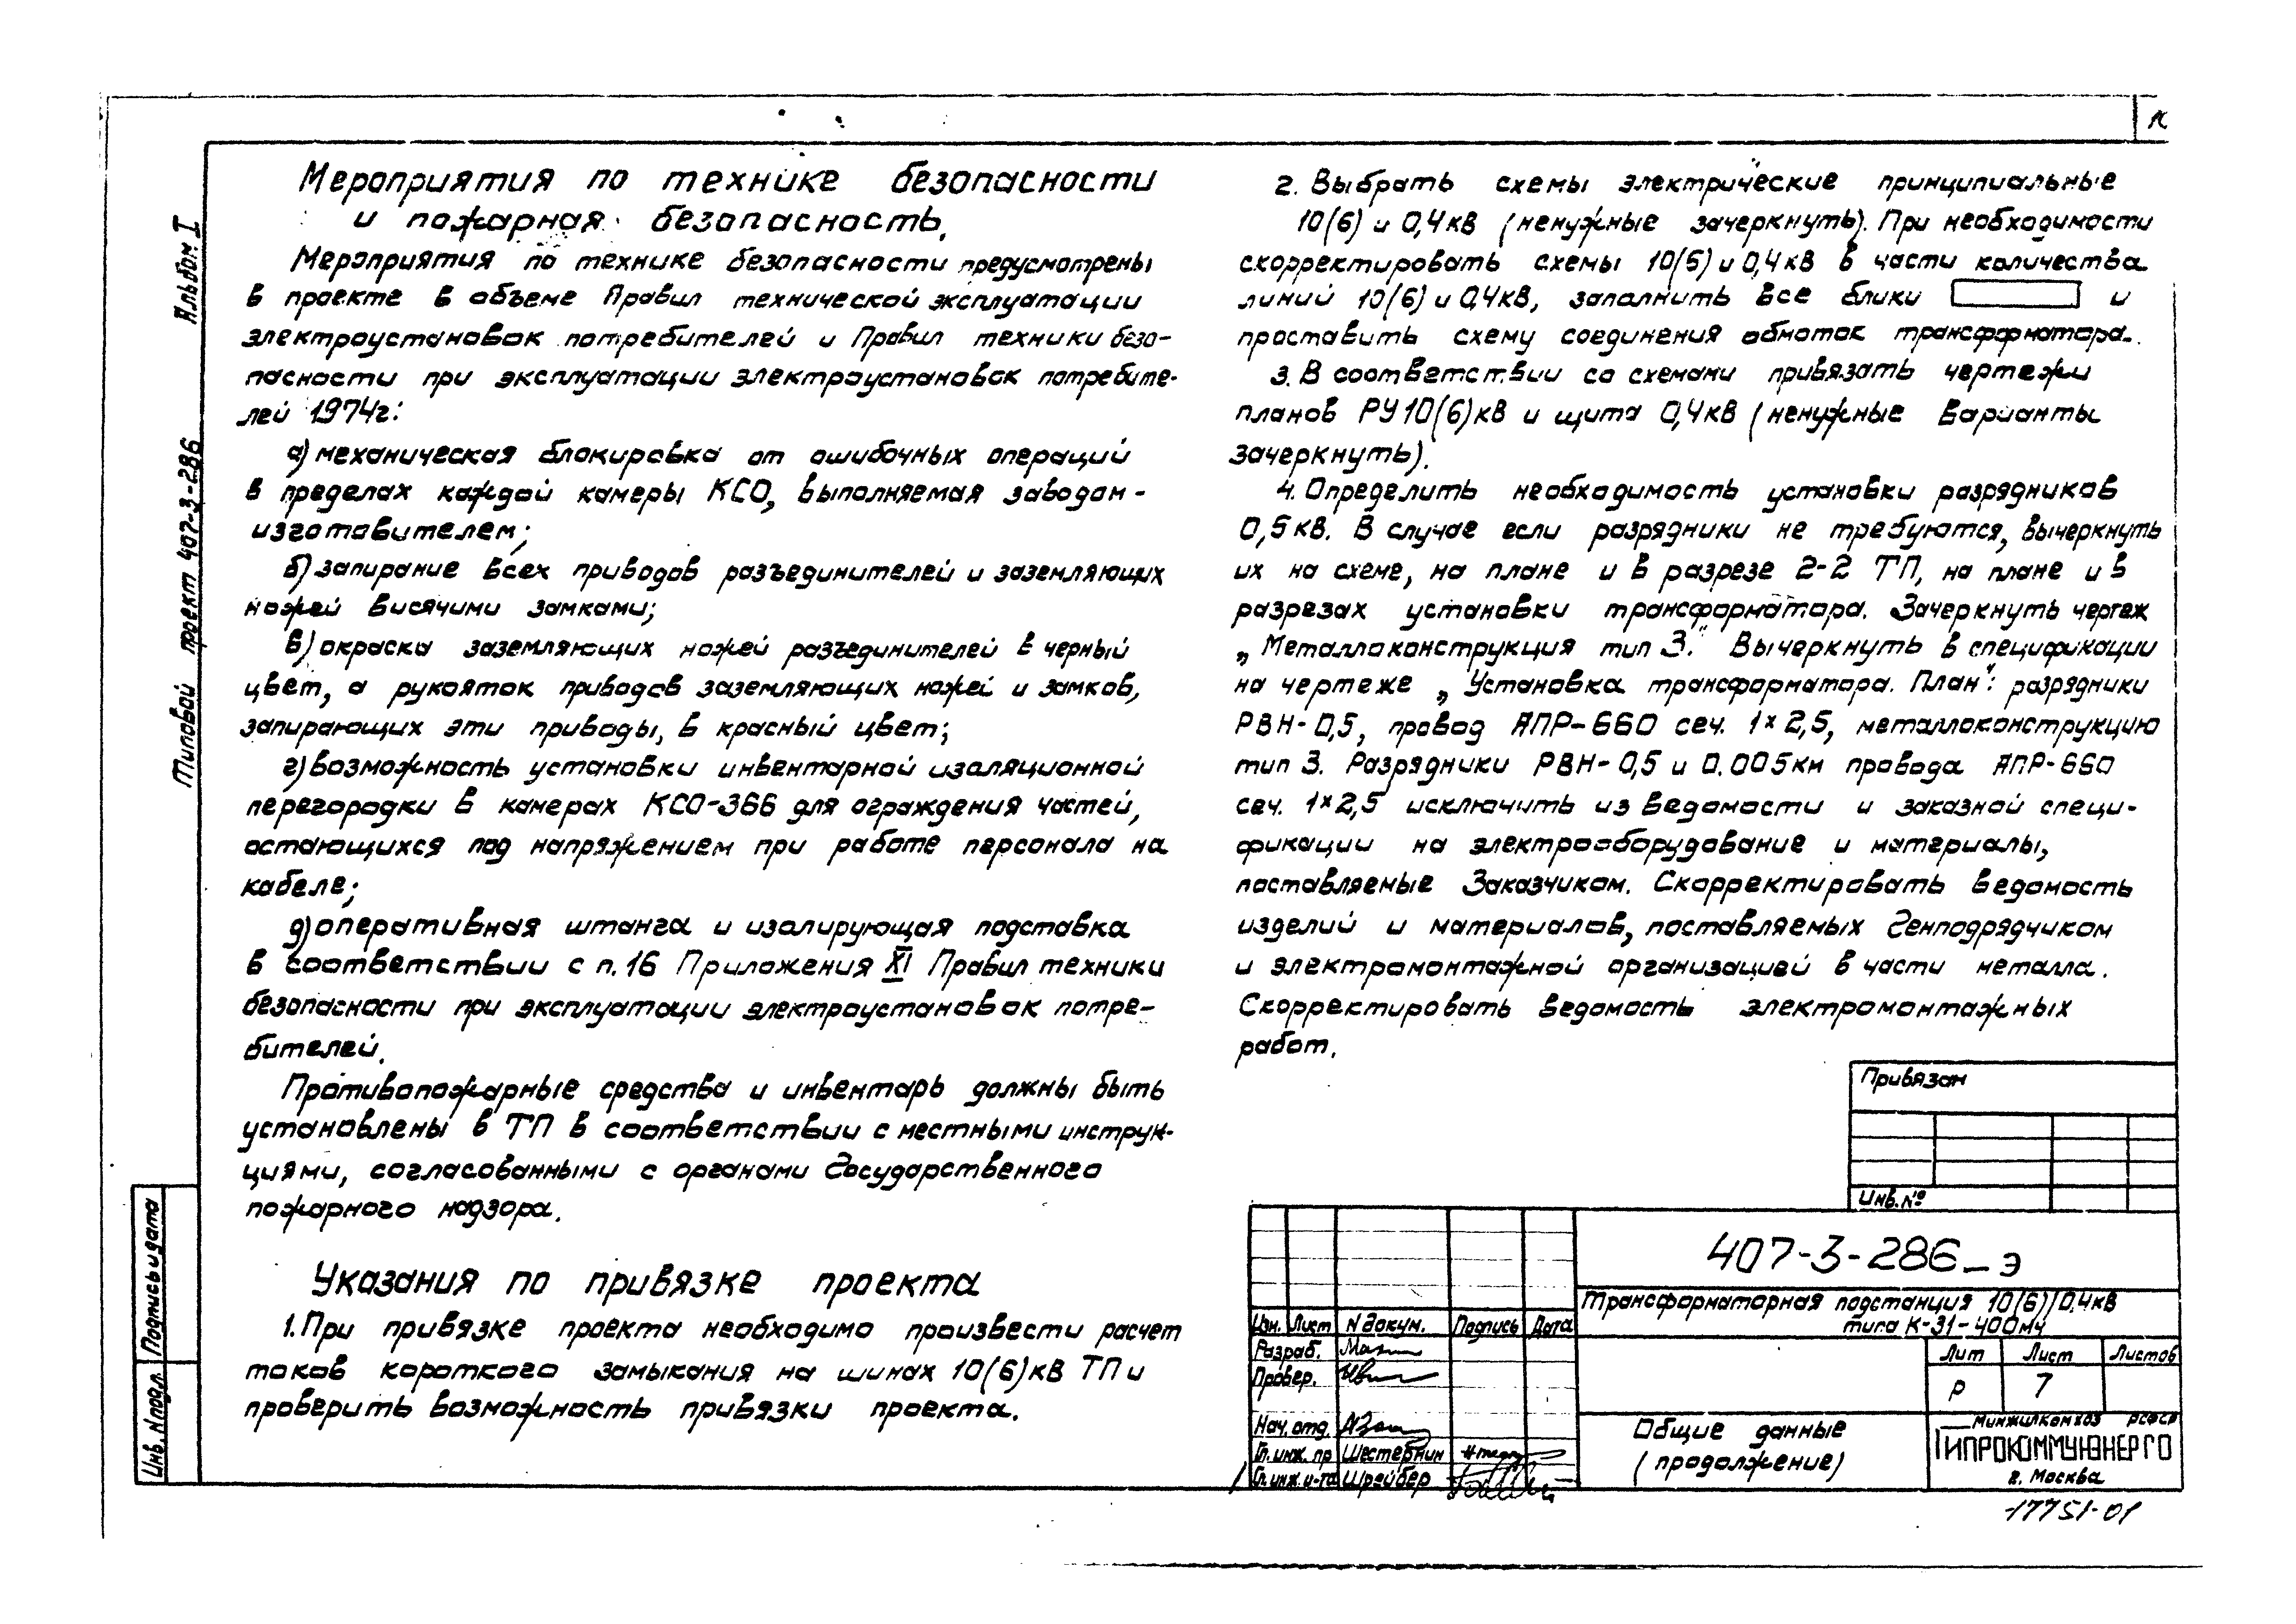 Альбом I
Типовой проект 407-3-286
Мероприятия по технике безопасности
и пожарная безопасность.
Мероприятия по технике безопасности предусмотрены
в проекте в объеме Правил технической эксплуатации
электроустановок потребителей и Правил техники безо-
пасности при эксплуатации электроустановок потребите-
лей 1974г:
а) механическая блокировка от ошибочных операций
в пределах каждой камеры КСО, выполняемая заводом-
изготовителем;
б) запирание всех приводов разъединителей и заземляющих
ножей висячими замками;
в) окраска заземляющих ножей разъединителей в черный
цвет, а рукояток приводов заземляющих ножей и замков,
запирающих эти приводы, в красный цвет;
г) возможность установки инвентарной изоляционной
перегородки в камерах КСО-366 для ограждения частей,
остающихся под напряжением при работе персонала на
кабеле;
д) оперативная штанга и изолирующая подставка
в соответствии с п.16 Приложения XI Правил техники
безопасности при эксплуатации электроустановок потре-
бителей.
Противопожарные средства и инвентарь должны быть
установлены в ТП в соответствии с местными инструк-
циями, согласованными с органами Государственного
пожарного надзора.
Указания по привязке проекта
1. При привязке проекта необходимо произвести расчет
токов короткого замыкания на шинах 10(6)кВ ТП и
проверить возможность привязки проекта.
2. Выбрать схемы электрические принципиальные
10(6) и 0,4кВ (ненужные зачеркнуть). При необходимости
скорректировать схемы 10(6) и 0,4кВ в части количества
линий 10(6) и 0,4кВ, заполнить все блики и
проставить схему соединения обмоток трансформатора.
3. В соответствии со схемами привязать чертежи
планов РУ10(6)кВ и щита 0,4кВ (ненужные варианты
зачеркнуть).
4. Определить необходимость установки разрядников
0,5кВ. В случае если разрядники не требуются, вычеркнуть
их на схеме, на плане и в разрезе 2-2 ТП, на плане и в
разрезах установки трансформатора. Зачеркнуть чертеж
„Металлоконструкция тип 3." Вычеркнуть в спецификации
на чертеже „Установка трансформатора. План": разрядники
РВН-0,5, провод АПР-660 сеч. 1×2,5, металлоконструкцию
тип 3. Разрядники РВН-0,5 и 0.005км провода АПР-660
сеч. 1×2,5 исключить из ведомости и заказной специ-
фикации на электрооборудование и материалы,
поставляемые Заказчиком. Скорректировать ведомость
изделий и материалов, поставляемых Генподрядчиком
и электромонтажной организацией в части металла.
Скорректировать ведомость электромонтажных
работ.
Привязан
Инв. №
407-3-286-э
Трансформаторная подстанция 10(6)/0,4кВ
типа К-31-400м4
Изм. Лист N докум. Подпись Дата
Разраб.
Провер.
Нач. отд.
Гл. инж. пр Шестернин
Гл. инж. и-та Шрейбер
Лит Лист Листов
Р 7
Общие данные
(продолжение)
Минжилкомхоз РСФСР
ГИПРОКОММУНЭНЕРГО
г. Москва
17751-01
Подпись и дата
Инв. N подл.